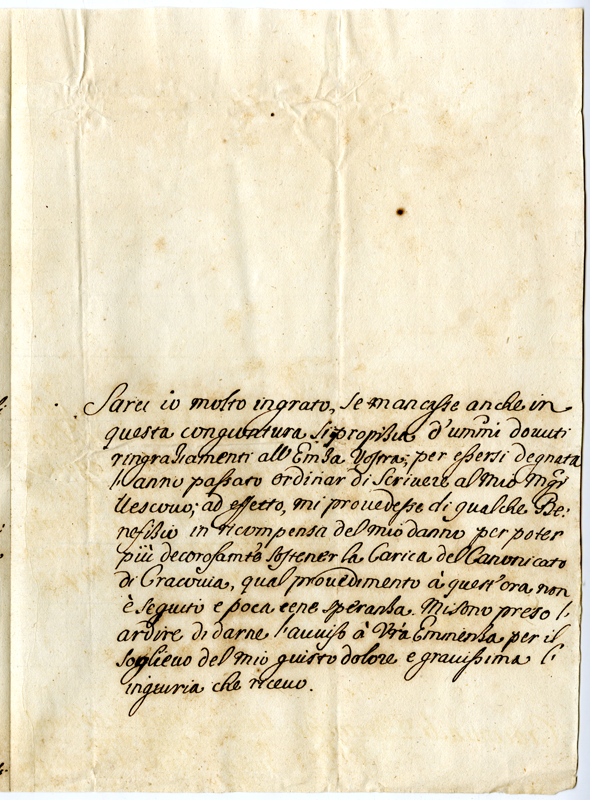 Sarei io molto ingrato, se mancasse anche in
questa congiuntura si propitia d'ummi dovuti
ringratiamenti all' Emza Vostra, per essersi degnata
l'anno passato ordinar di scrivere al mio Mgr
Vescovo; ad effetto, mi provedesse di qualche Be:
nefitio in ricompensa del mio danno per poter
più decorosamte sostener la Carica del Canonicato
di Cracovia, qual provedimento à quest'ora non
è seguito e poca ne speranza. Mi sono preso l'
ardire di darne l'avviso à Vra Emmenza per il
soglievo del mio giusto dolore e gravissima l'
ingiuria che ricevo.